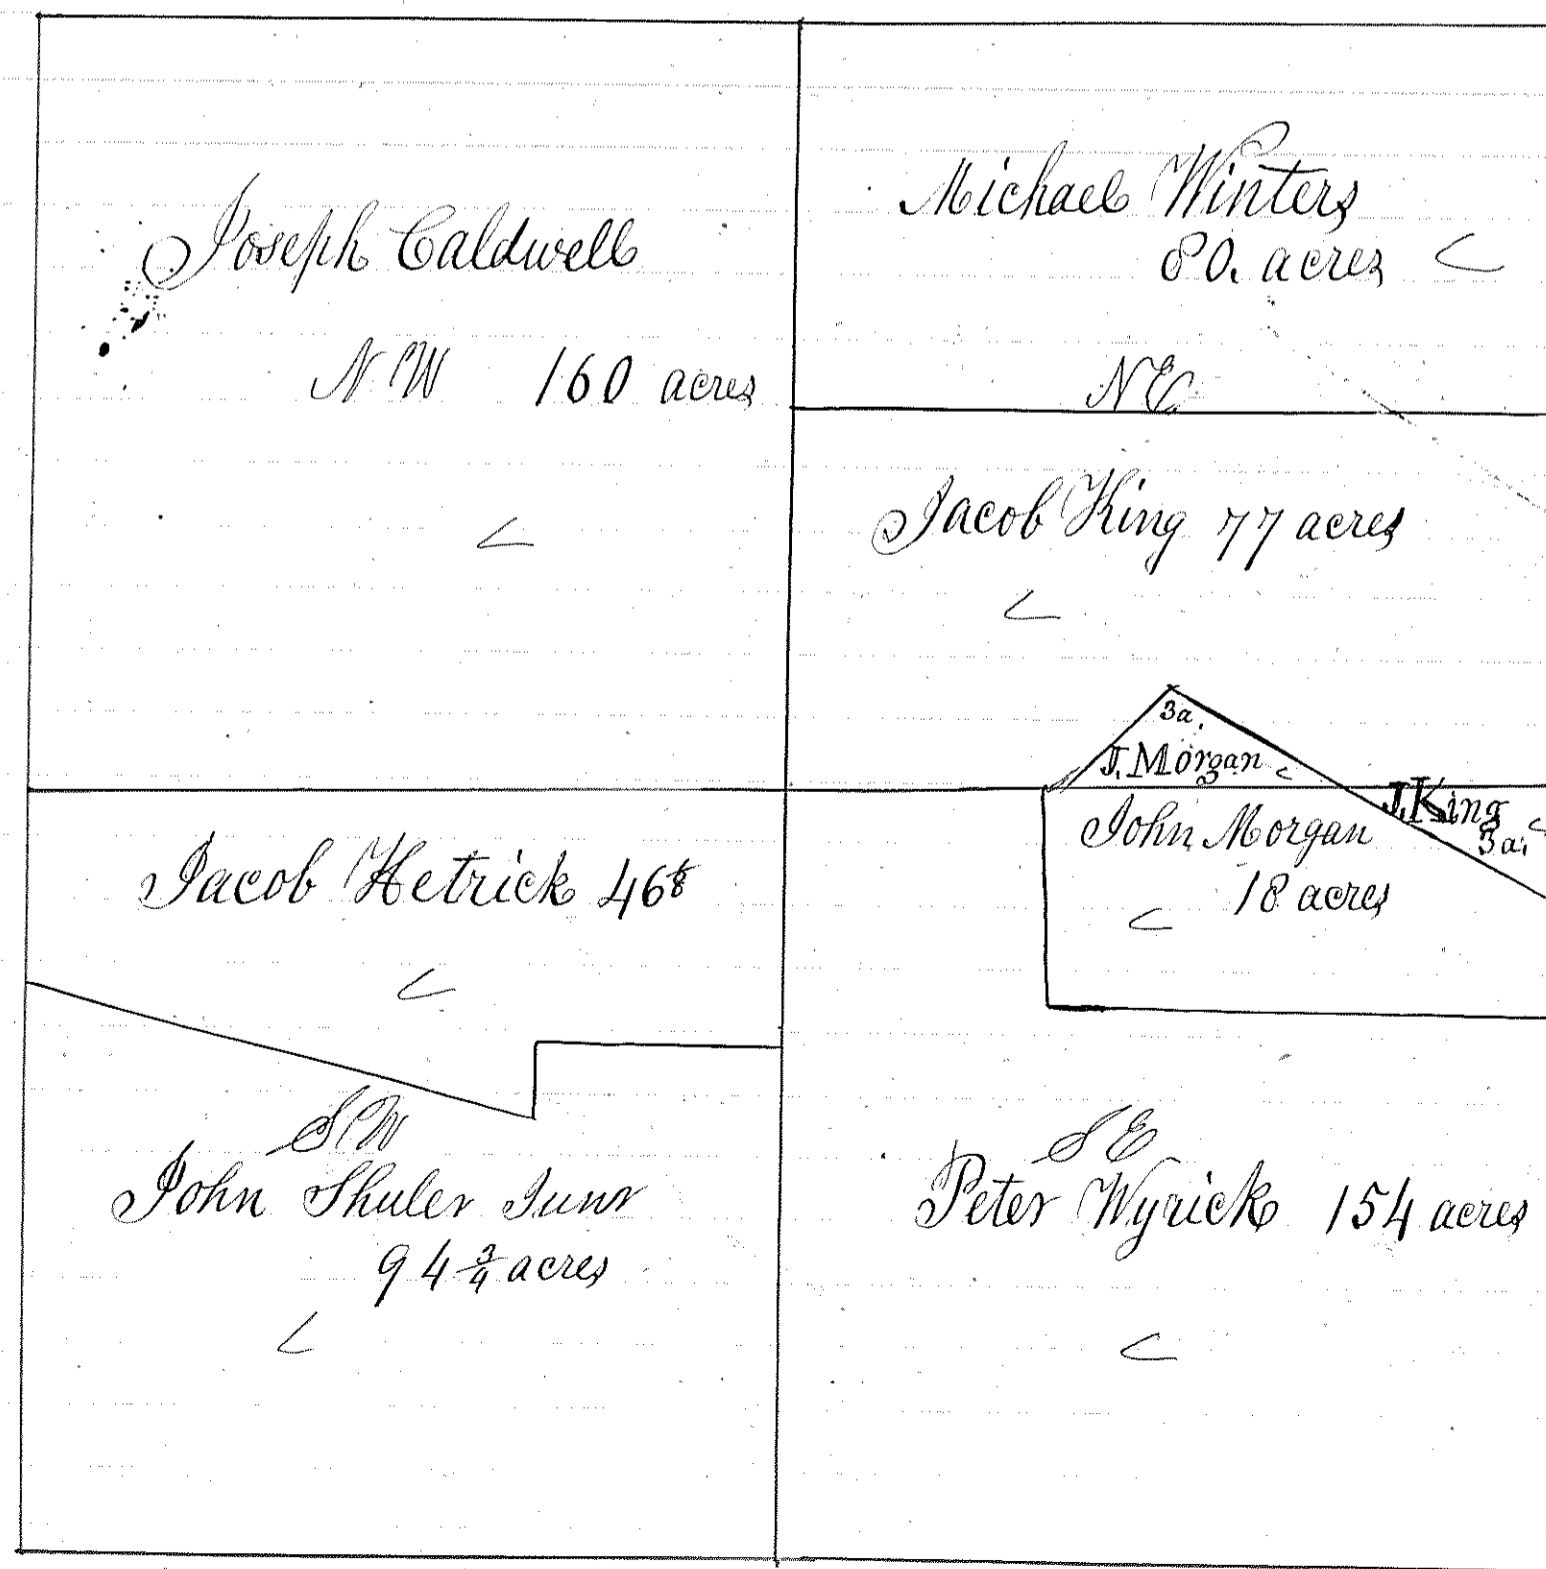 Joseph Caldwell
NW 160 acres
Michael Winters
80. acres
NE
Jacob King 77 acres
3a.
J. Morgan
J. King
3a.
John Morgan
18 acres
Jacob Hetrick
SW
John Shuler Junr
94 3/4 acres
SE
Peter Wyrick 154 acres